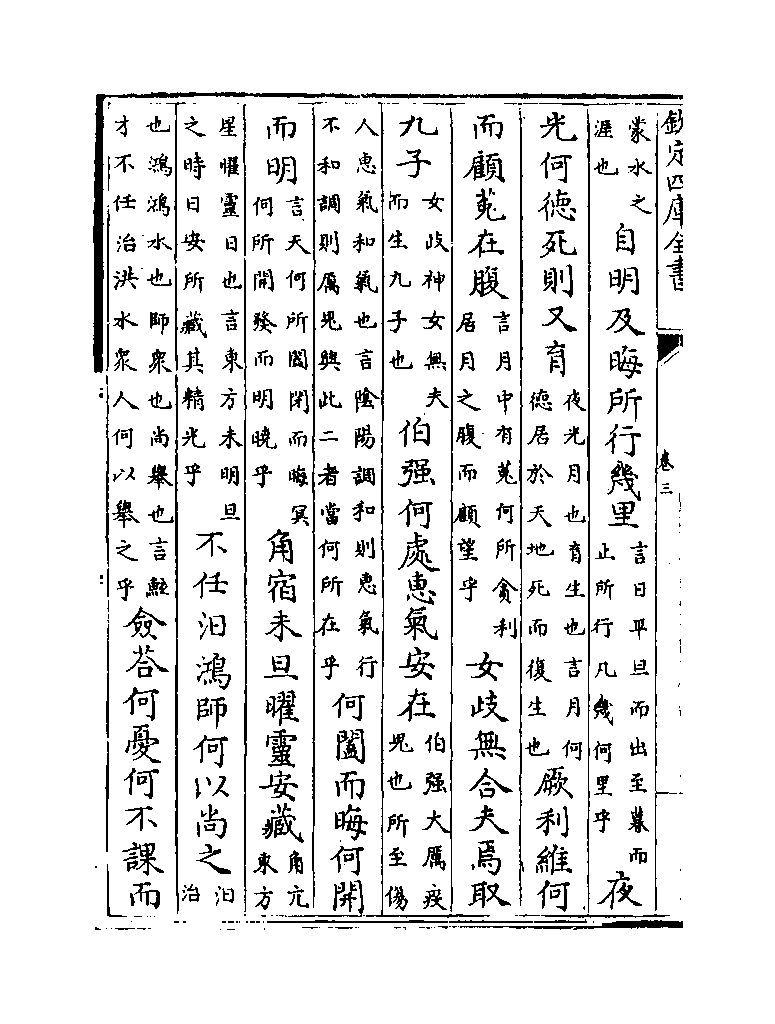 欽定四庫全書 卷三
蒙水之涯也自明及晦所行幾里言日平旦而出至暮而止所行凡幾何里乎夜
光何德死則又育夜光月也育生也言月何德居於天地死而復生也厥利維何
而顧菟在腹言月中有菟何所貪利居月之腹而顧望乎女歧無合夫焉取
九子女歧神女無夫而生九子也伯强何處惠氣安在伯强大厲疫鬼也所至傷
人惠氣和氣也言陰陽調和則惠氣行不和調則厲鬼興此二者當何所在乎何闔而晦何開
而明言天何所闔閉而晦冥何所開發而明曉乎角宿未旦曜靈安藏角亢東方
星曜靈日也言東方未明旦之時日安所藏其精光乎不任汩鴻師何以尚之汩治
也鴻鴻水也師衆也尚舉也言鯀才不任治洪水衆人何以舉之乎僉荅何憂何不課而